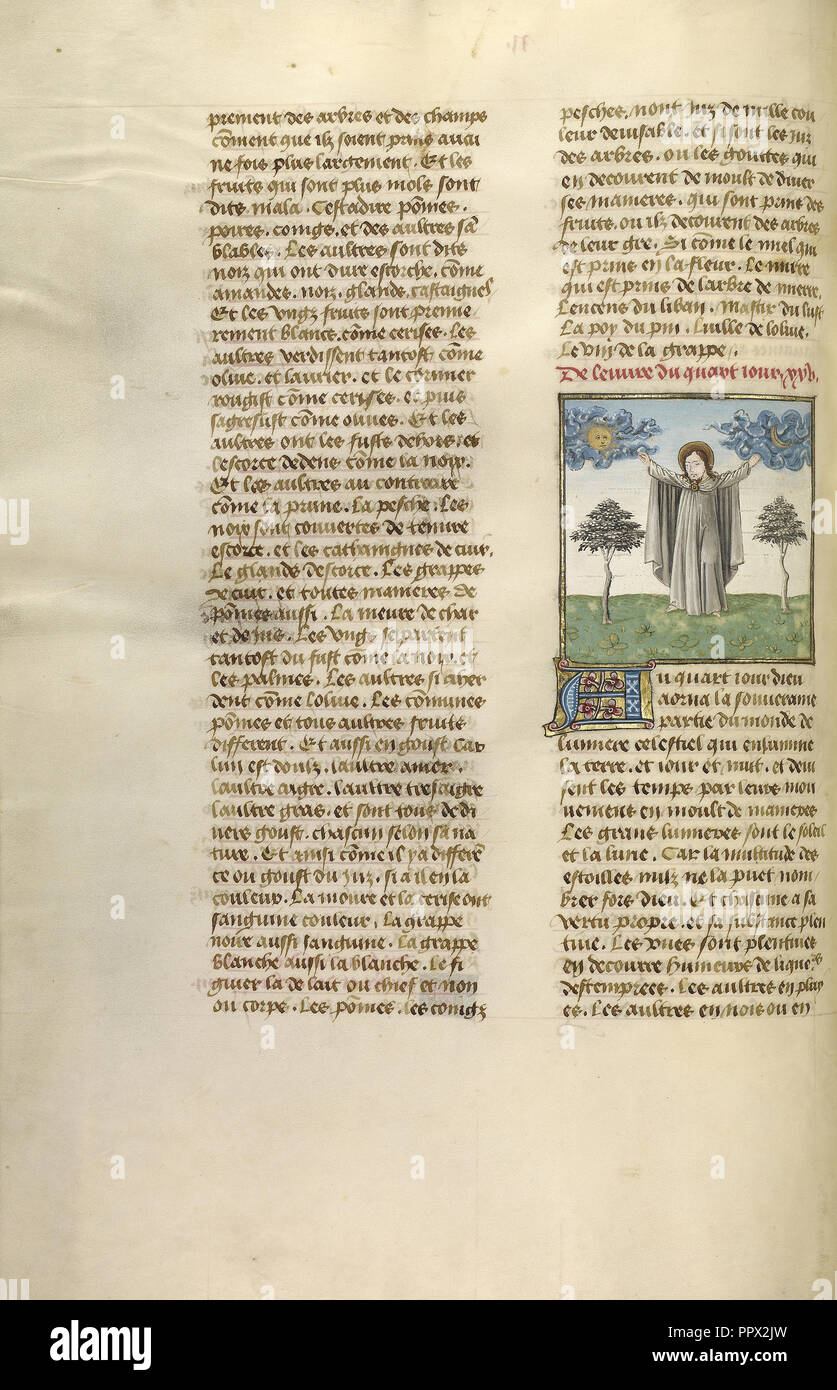 prement des arbres et des champs
cōment que ilz soient prins auci
ne fois plus largement. Et les
fruits qui sont plus mols sont
dits mala. Cestadire pōmes.
poires. coings. et des aultres sā
blables. Les aultres sont dits
noiz qui ont dure escorche. cōme
amandes. noiz. glande. castaignes
Et les vngz fruits sont premie
rement blancs. cōme cerises. Les
aultres verdissent tantost cōme
oliue. et laurier. et le cormier
rougist cōme cerises. et puis
sagresust cōme oliues. Et les
aultres ont les fusts dehors et
lescorce dedens cōme la noix.
Et les aultres au contraire
cōme la prune. la pesche. Les
noiz sont couuertes de tenure
escorce. et les cathaingnes de cuir.
Le glande descorce. Les grappes
de cuir. et toutes manieres de
pōmes aussi. La meure de char
et de ius. Les vngs se partent
tantost du fust cōme la noix et
les palmes. Les aultres si aher
dent cōme loliue. Les cōmunes
pōmes et tous aultres fruits
different. Et aussi en goust Car
lun est doulz. laultre amer.
laultre aigre. laultre tresaigre
laultre gras. et sont tous de di
uers goust. chascun selon sa na
ture. Et ainsi cōme il ya differē
ce ou goust du iuz. si a il en la
couleur. La moure et la cerise ont
sanguine couleur. La grappe
noire aussi sanguine. La grappe
blanche aussi la blanche. Le fi
guier la de lait ou chief et non
ou corps. Les pōmes. les coingz
pesches. nont iuz de nulle cou
leur deuisable. et si sont les iuz
des arbres. ou les gouttes qui
en decourent de moult de diuer
ses manieres. qui sont prins des
fruits. ou ilz decourent des arbres
de leur gre. Si cōme le miel qui
est prins en la fleur. Le mirre
qui est prins de larbre de mirre.
Lencens du liban. Mastic du
La poy du pin. Luille de loliue.
Le vin de la grappe.
De leuure du quart iour. xxvi.
Au quart iour dieu
aorna la souueraine
partie du monde de
lumiere celestiel qui enlumine
la terre. et iour et nuit. et deui
sent les temps par leurs mou
uemens en moult de manieres
Les grans lumieres sont le soleil
et la lune. Car la multitude des
estoilles nulz ne la puet nom
brer fors dieu. Et chascune a sa
vertu propre. et sa substance plen
tiue. Les vnes sont plentiues
en decourre humeurs de liques
destemprees. Les aultres en pluy
es. Les aultres en nois ou en
alamy
Image ID: PPX2JW
www.alamy.com